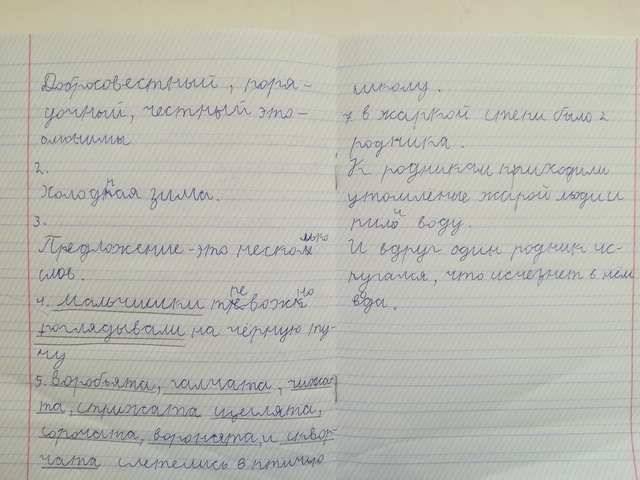 Добросовестный, поря-
дочный, честный это-
омонимы
2.
Холодная зима.
3.
Предложение-это несколько
слов.
4. Мальчишки тревожно
поглядывали на чёрную ту-
чу
5. Воробьята, галчата, чижа-
та, стрижата щеглята,
сорочата, воронята, и сквор-
чата слетелись в птичью
школу.
7 в жаркой степи было 2
родника.
К родникам приходили
утомлёные жарой люди и
пили воду.
И вдруг один родник ис-
пугался, что исчезнет в нем
вода.